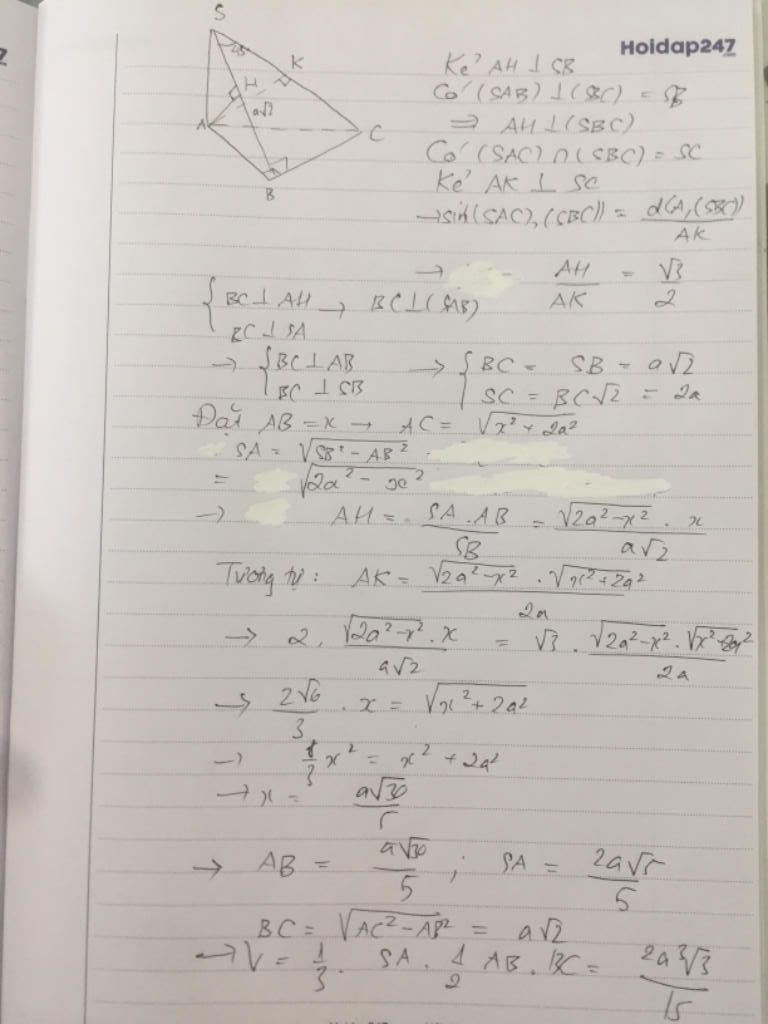 Hoidap247
S
45
K
H
a√2
A
C
B
Kẻ AH ⊥ SB
Có (SAB) ⊥ (SBC) = SB
⇒ AH ⊥ (SBC)
Có (SAC) ∩ (SBC) = SC
Kẻ AK ⊥ SC
→ sin((SAC), (SBC)) = d(A, (SBC)) / AK
→ AH / AK = √3 / 2
{ BC ⊥ AH → BC ⊥ (SAB)
BC ⊥ SA
→ { BC ⊥ AB → { BC = SB = a√2
BC ⊥ SB SC = BC√2 = 2a
Đặt AB = x → AC = √(x² + 2a²)
SA = √(SB² - AB²)
= √(2a² - x²)
→ AH = SA . AB / SB = √(2a² - x²) . x / a√2
Tương tự : AK = √(2a² - x²) . √(x² + 2a²) / 2a
→ 2 . √(2a² - x²) . x / a√2 = √3 . √(2a² - x²) . √(x² + 2a²) / 2a
→ 2√6 / 3 . x = √(x² + 2a²)
→ x² = x² + 2a²
→ x = a√30 / 5
→ AB = a√30 / 5 ; SA = 2a√5 / 5
BC = √(AC² - AB²) = a√2
→ V = 1/3 . SA . 1/2 AB . BC = 2a³√3 / 15